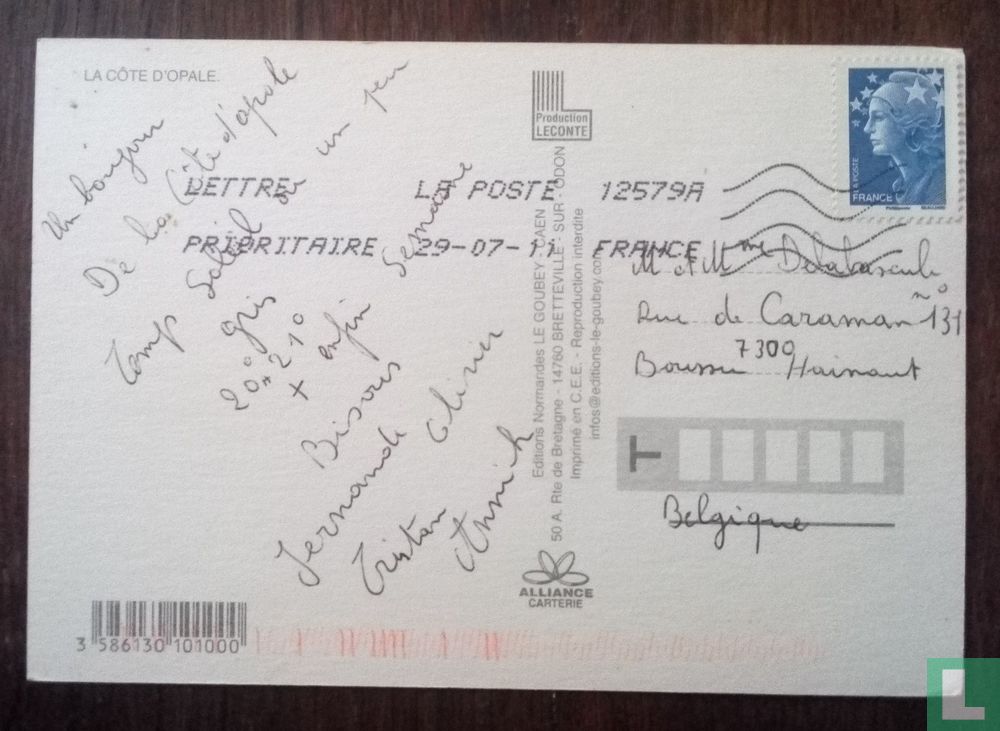 LA CÔTE D'OPALE.
Un bonjour
De la Côte d'opale
Temps Soleil ou un peu
gris
20° 21°
+ enfin semaine
Bisous
Fernande Olivier
Tristan Annick
Production
LECONTE
Editions Normandes LE GOUBEY - CAEN
50 A. Rte de Bretagne - 14760 BRETTEVILLE - SUR - ODON
Imprimé en C.E.E. - Reproduction interdite
infos@editions-le-goubey.com
ALLIANCE
CARTERIE
LETTRE LA POSTE 12579A
PRIORITAIRE 29-07-11 FRANCE
LA POSTE
FRANCE
M et Mme
Rue de Caraman n° 131
7300
Boussu Hainaut
T
Belgique
3 586130 101000
L